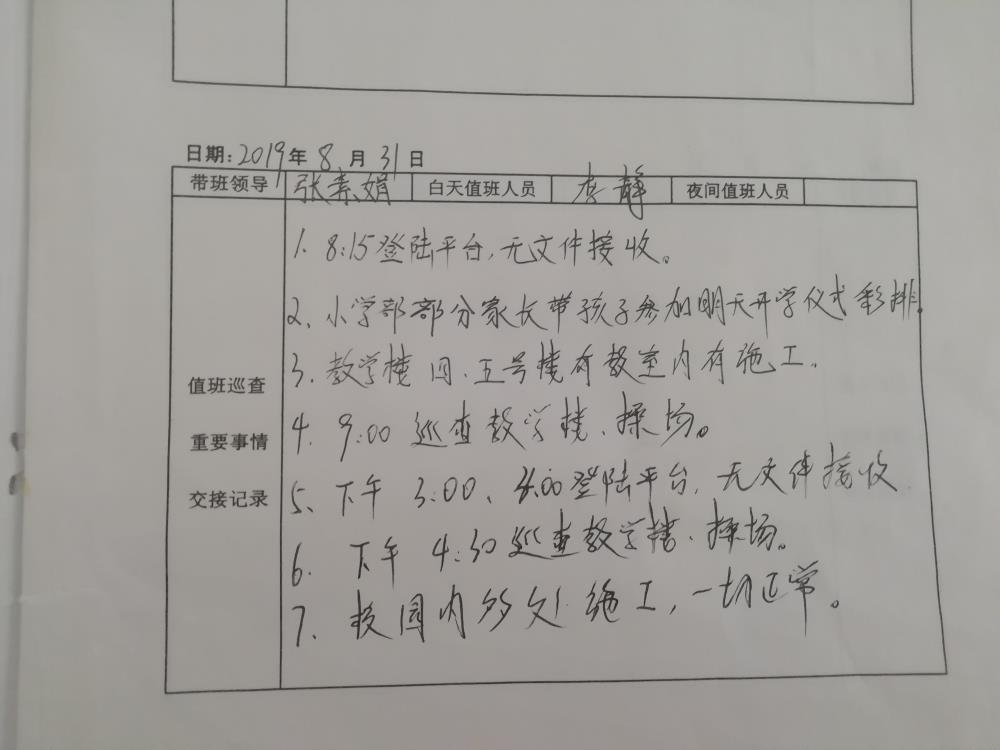 日期:2019年8月31日
带班领导 张素娟 白天值班人员 李静 夜间值班人员
1. 8:15登陆平台,无文件接收。
2、小学部部分家长带孩子参加明天开学仪式彩排。
3、教学楼四、五号楼有教室内有施工。
值班巡查
4. 9:00 巡查教学楼、操场。
重要事情
5、下午 3:00、4:00登陆平台,无文件接收
交接记录
6. 下午 4:30巡查教学楼、操场。
7、校园内多处施工,一切正常。